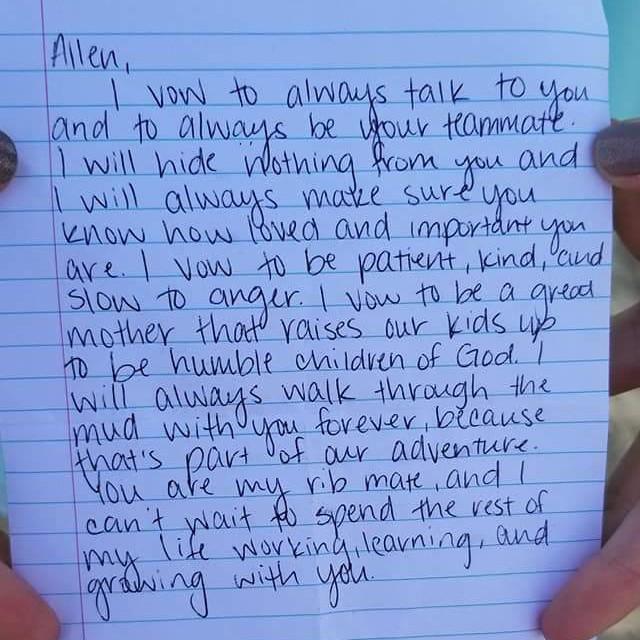 Allen,
I vow to always talk to you
and to always be your teammate.
I will hide nothing from you and
I will always make sure you
know how loved and important you
are. I vow to be patient, kind, and
slow to anger. I vow to be a great
mother that raises our kids up
to be humble children of God. I
will always walk through the
mud with you forever, because
that's part of our adventure.
You are my rib mate, and I
can't wait to spend the rest of
my life working, learning, and
growing with you.